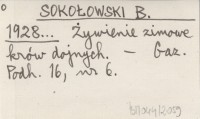 SOKOŁOWSKI B.
1928... Żywienie zimowe
krów dojnych. – Gaz.
Podh. 16, nr 6.